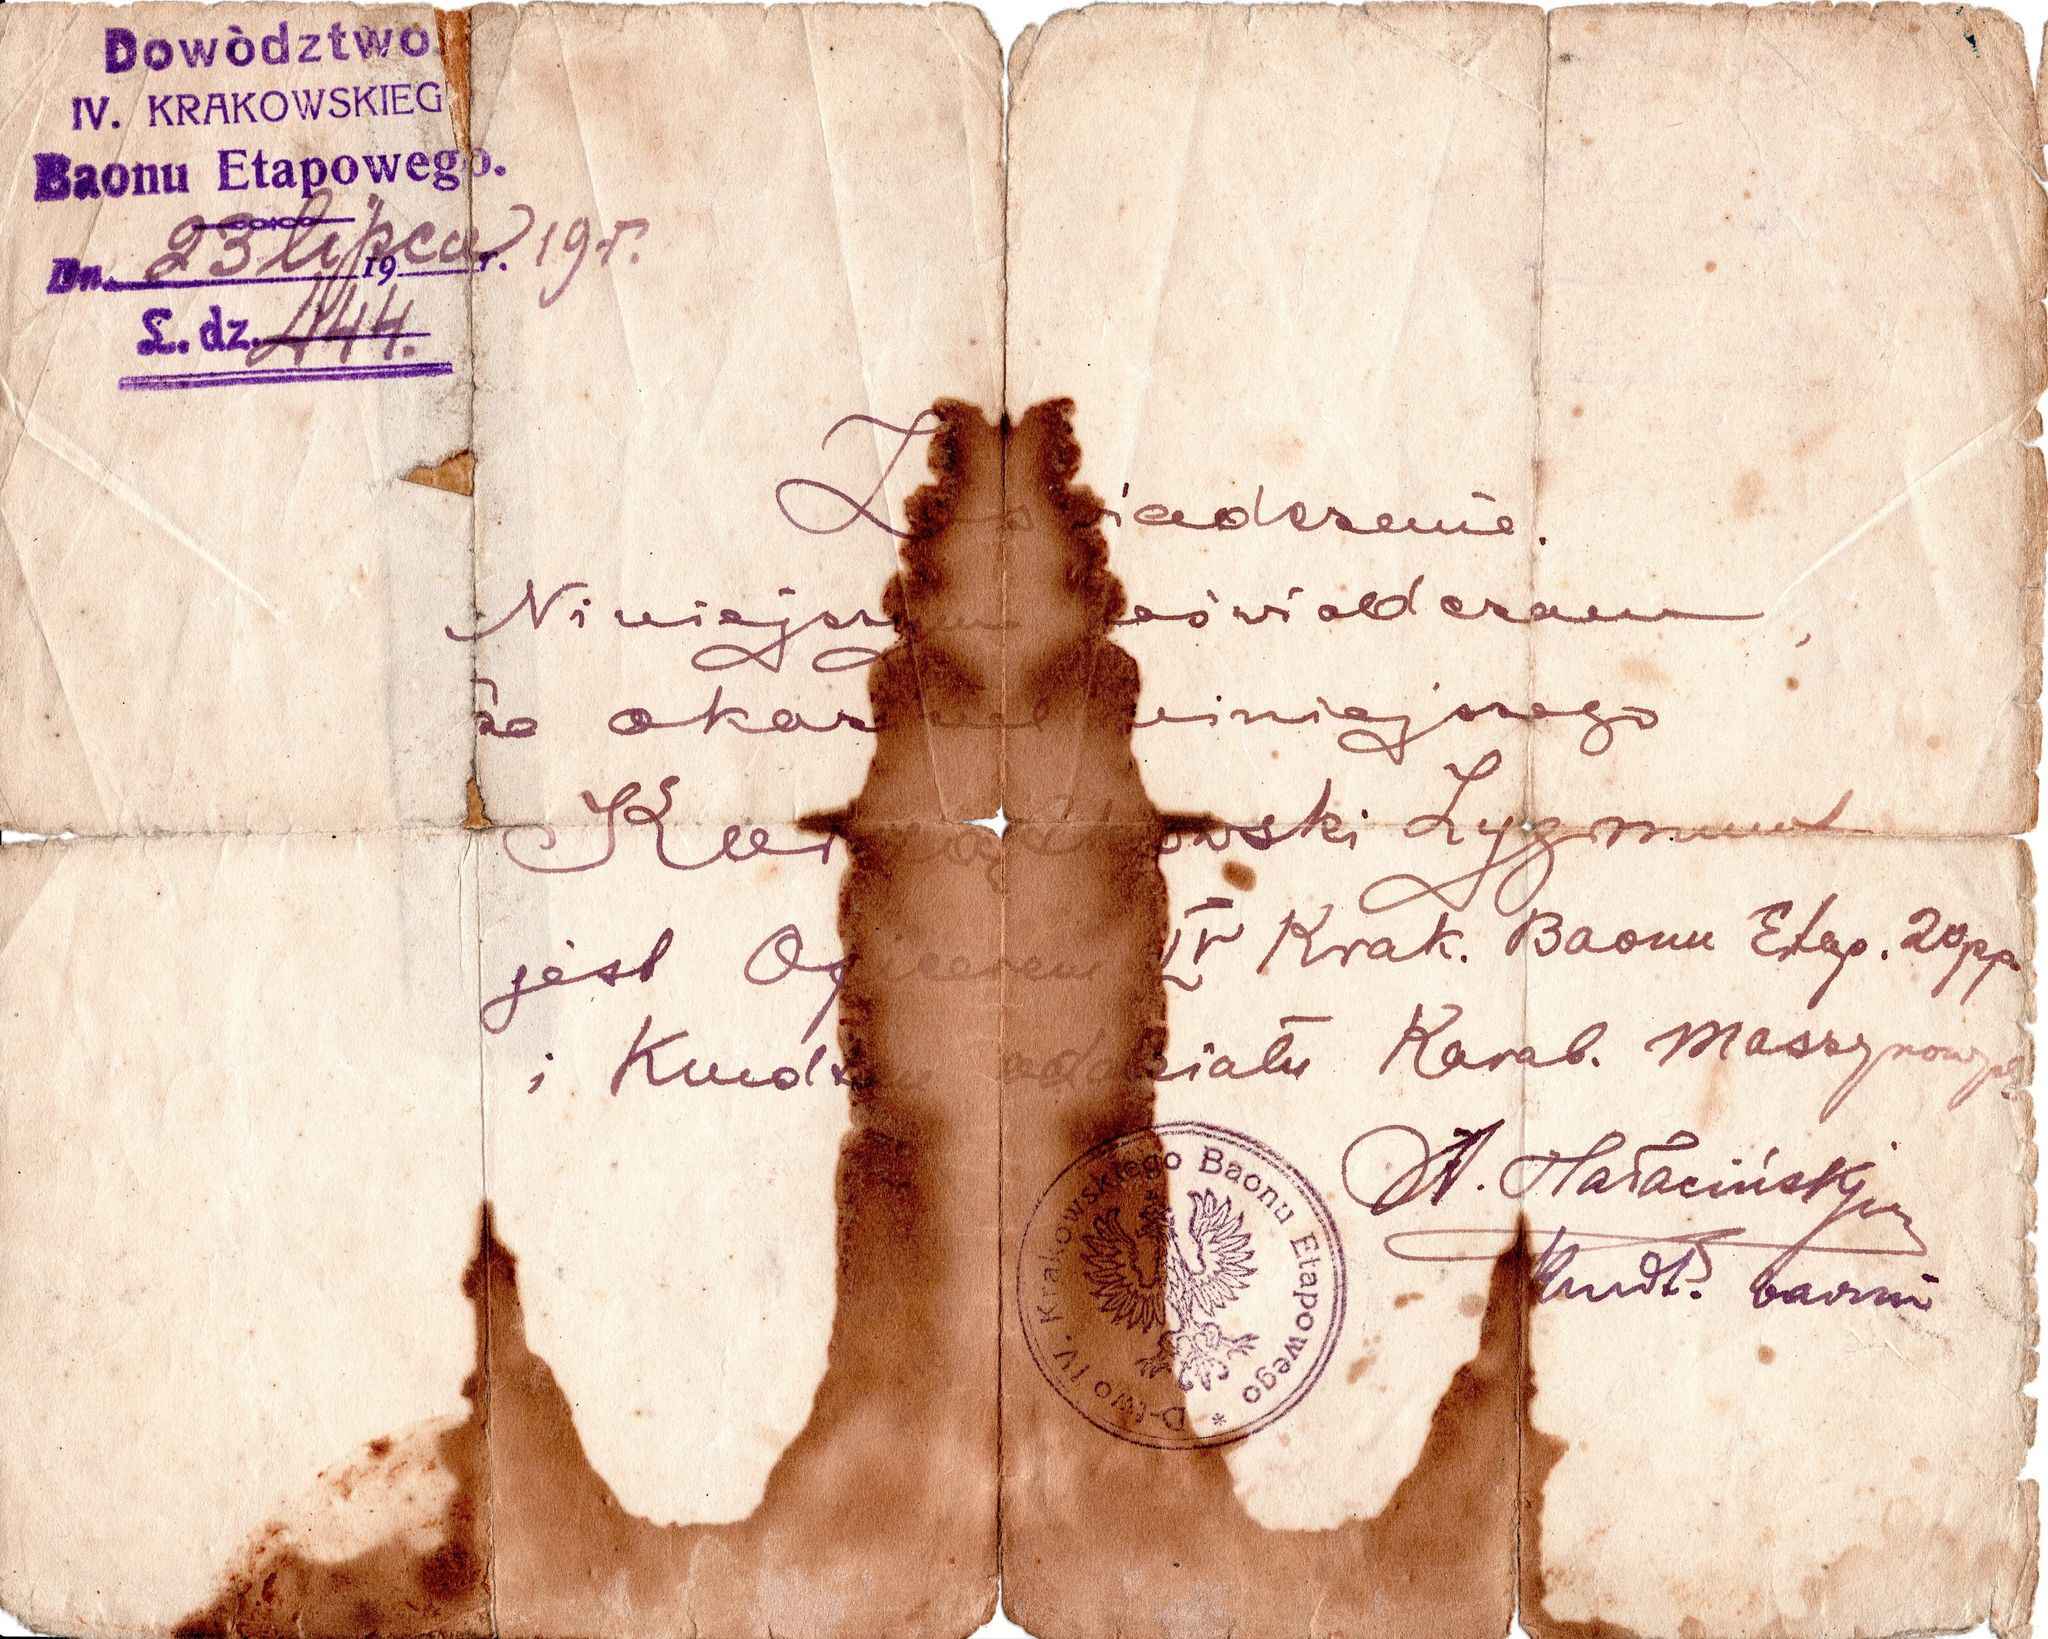 Dowòdztwo
IV. KRAKOWSKIEG
Baonu Etapowego.
Dn. 23 lipca 19 r. 19 r.
L. dz. 444.
Zaświadczenie.
Niniejszym zaświadczam,
że okaziciel niniejszego
Zygmunt
jest Oficerem IV Krak. Baonu Etap. 20 pp.
i Kmdtem oddziału Karab. Maszynowych
D-two IV. Krakowskiego Baonu Etapowego *
A. Hałaciński
Kmdt. baonu